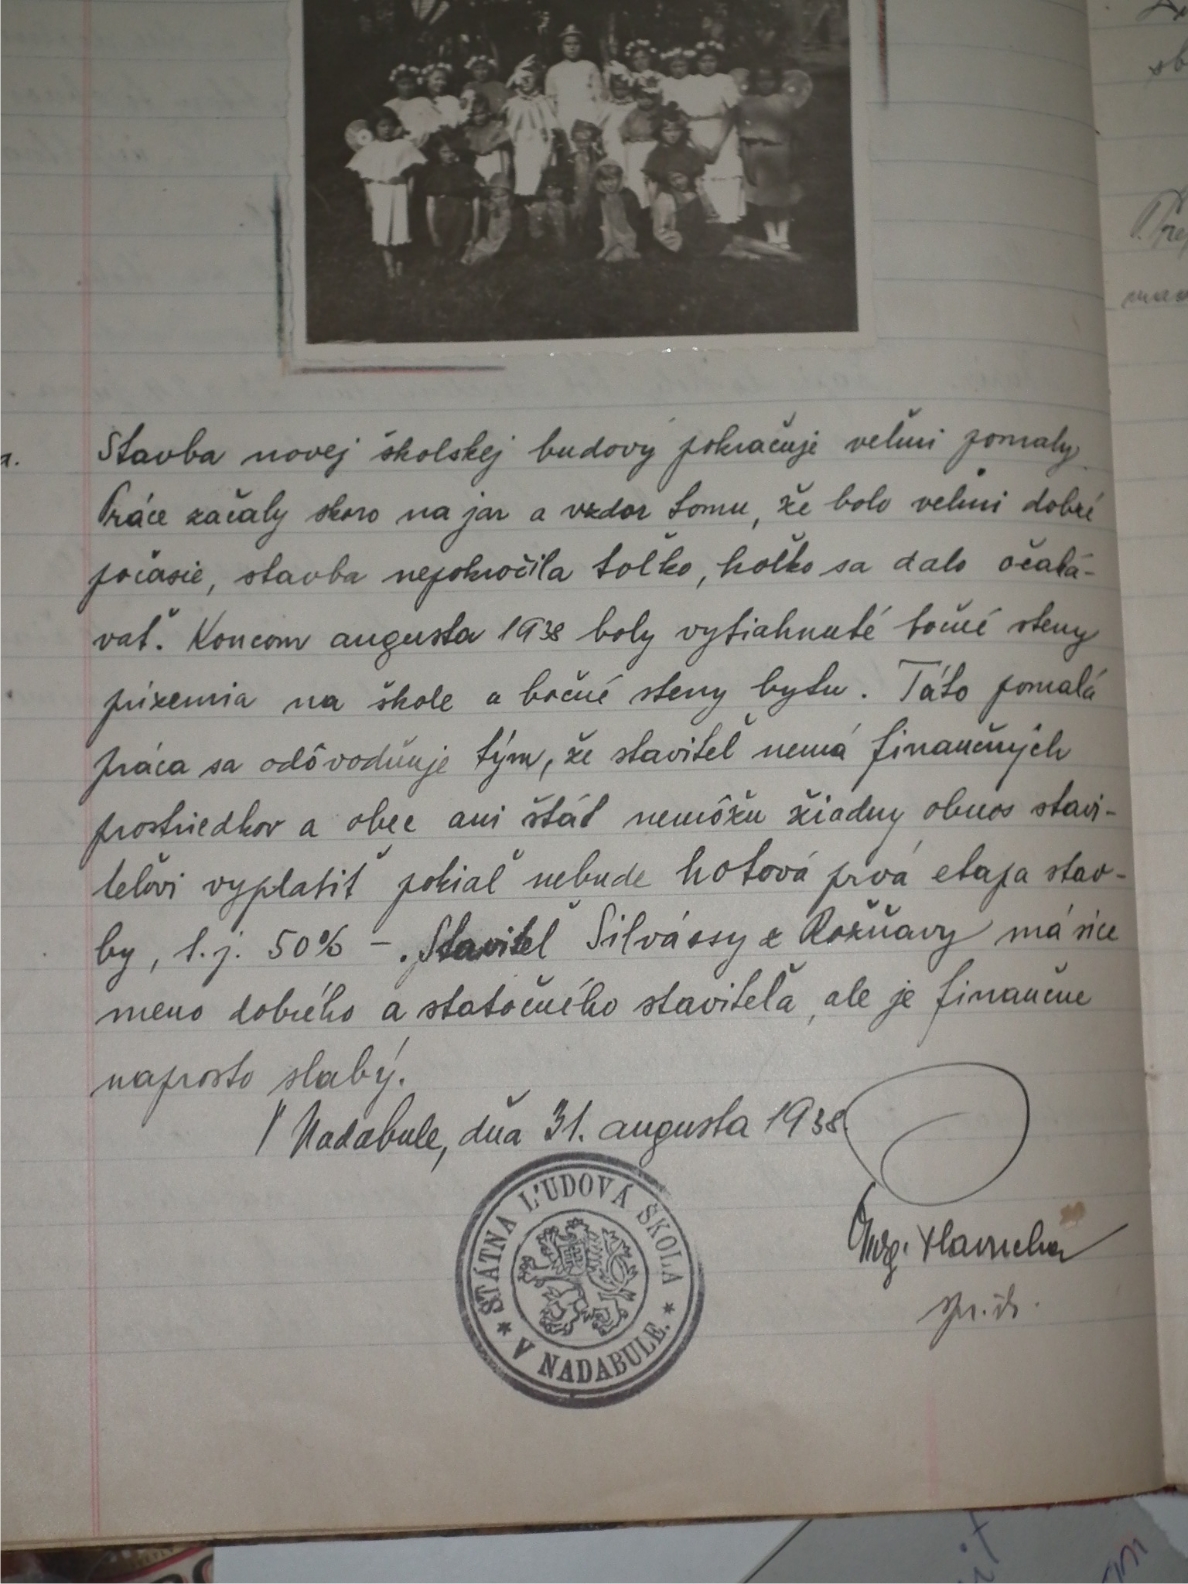 Stavba novej školskej budovy pokračuje veľmi pomaly.
Práce začaly skoro na jar a vzdor tomu, že bolo veľmi dobré
počasie, stavba nepokročila toľko, koľko sa dalo očaká-
vať. Koncom augusta 1938 boly vytiahnuté bočné steny
prízemia na škole a bočné steny bytu. Táto pomalá
práca sa odôvodňuje tým, že staviteľ nemá finančných
prostriedkov a obec ani štát nemôžu žiadny obnos stavi-
teľovi vyplatiť pokiaľ nebude hotová prvá etapa stav-
by, t.j. 50% - . Staviteľ Silvássy z Rožňavy má síce
meno dobrého a statočného staviteľa, ale je finančne
naprosto slabý.
V Nadabule, dňa 31. augusta 1938.
ŠTÁTNA ĽUDOVÁ ŠKOLA
V NADABULE.